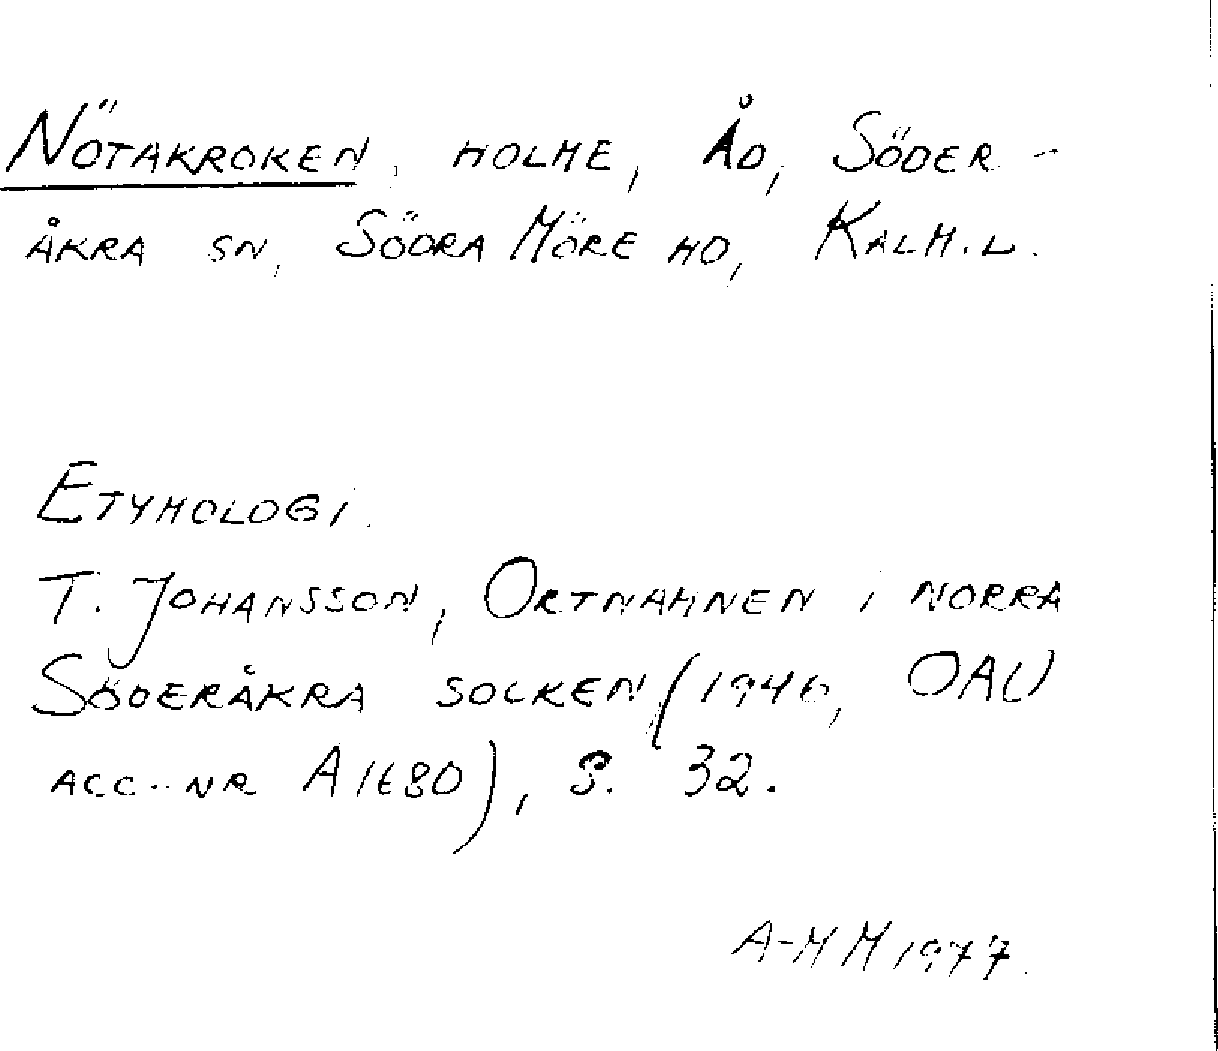 NÖTAKROKEN, HOLME, ÅD, SÖDER-
ÅKRA SN, SÖDRA MÖRE HD, KALM.L.
ETYMOLOGI.
T. JOHANSSON, ORTNAMNEN I NORRA
SÖDERÅKRA SOCKEN (1946, OAU
ACC.-NR A1680), S. 32.
A-MM 1977.